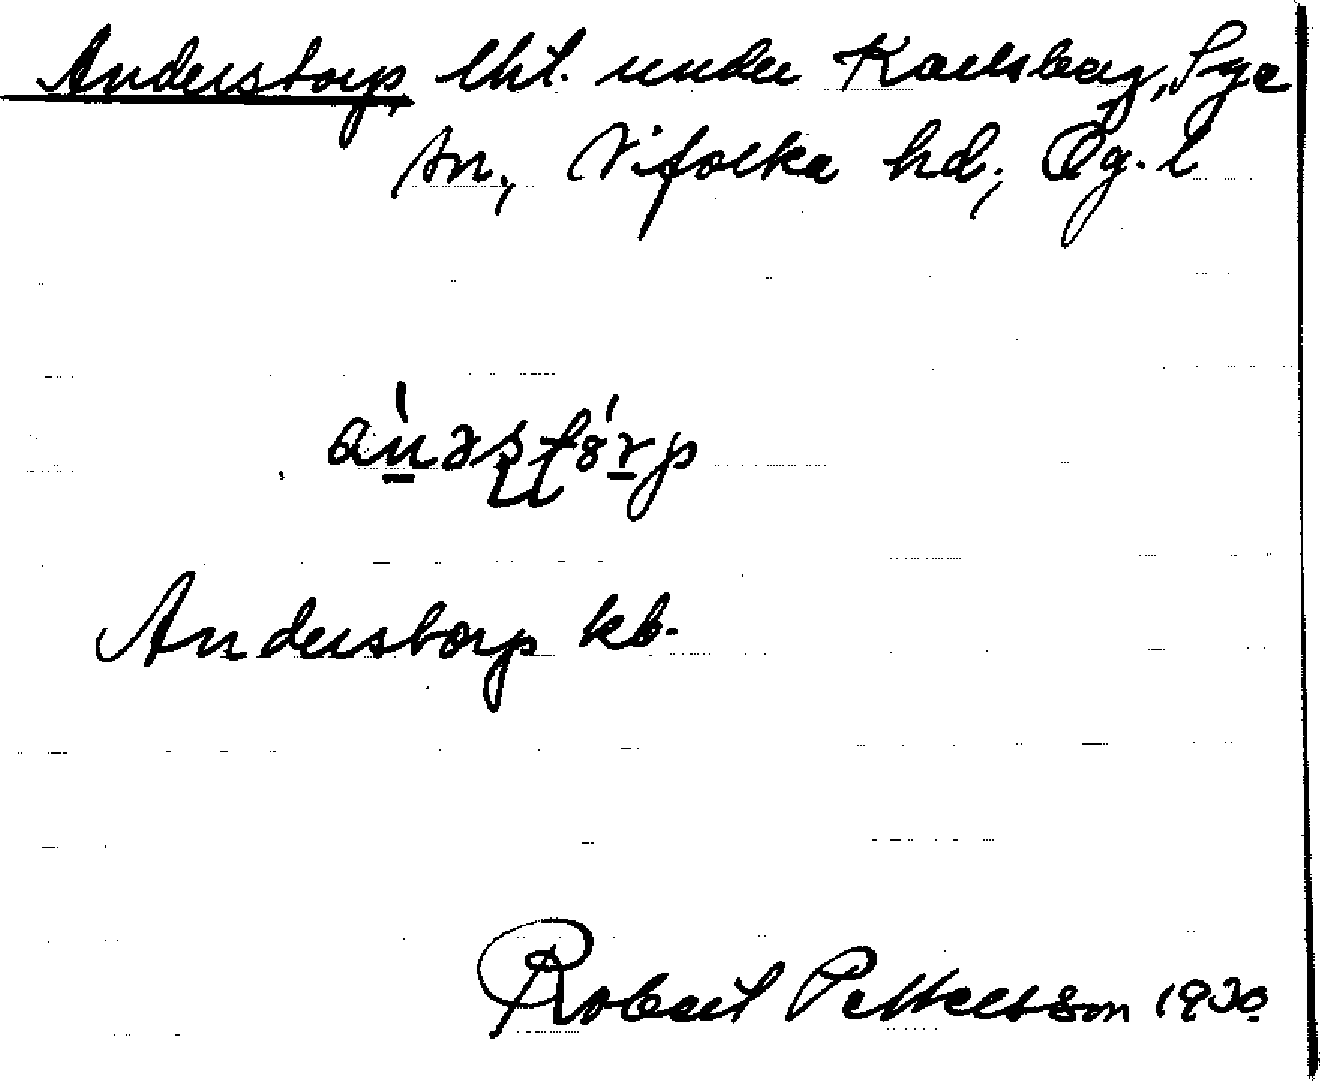 Anderstorp, lht. under Karlsberg, Sya
sn., Vifolka hd, Ög. l
Anderstorp kb.
Robert Pettersson 1930